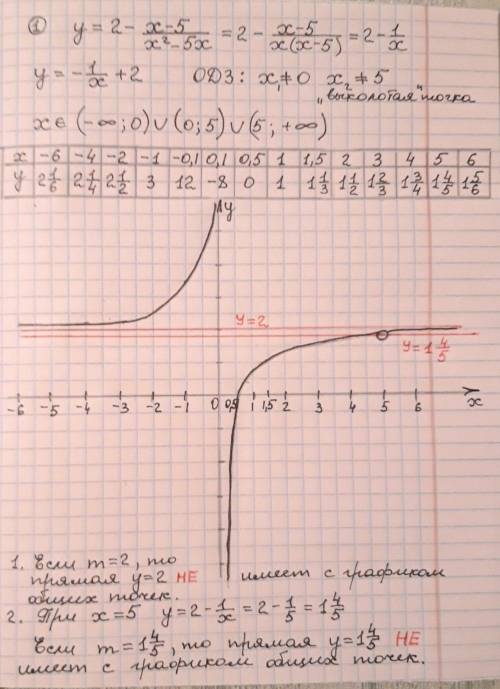 ① y = 2 - \frac{x-5}{x²-5x} = 2 - \frac{x-5}{x(x-5)} = 2 - \frac{1}{x}
y = -\frac{1}{x} + 2 ОДЗ: x₁ ≠ 0 x₂ ≠ 5
„выколотая" точка
x ∈ (-∞; 0) ∪ (0; 5) ∪ (5; +∞)
x -6 -4 -2 -1 -0,1 0,1 0,5 1 1,5 2 3 4 5 6
y 2\frac{1}{6} 2\frac{1}{4} 2\frac{1}{2} 3 12 -8 0 1 1\frac{1}{3} 1\frac{1}{2} 1\frac{2}{3} 1\frac{3}{4} 1\frac{4}{5} 1\frac{5}{6}
y
y=2
y=1\frac{4}{5}
-6 -5 -4 -3 -2 -1 0 0,5 1 1,5 2 3 4 5 6 x
1. Если m=2, то
прямая y=2 НЕ имеет с графиком
общих точек.
2. При x=5 y = 2 - \frac{1}{x} = 2 - \frac{1}{5} = 1\frac{4}{5}
Если m=1\frac{4}{5}, то прямая y=1\frac{4}{5} НЕ
имеет с графиком общих точек.